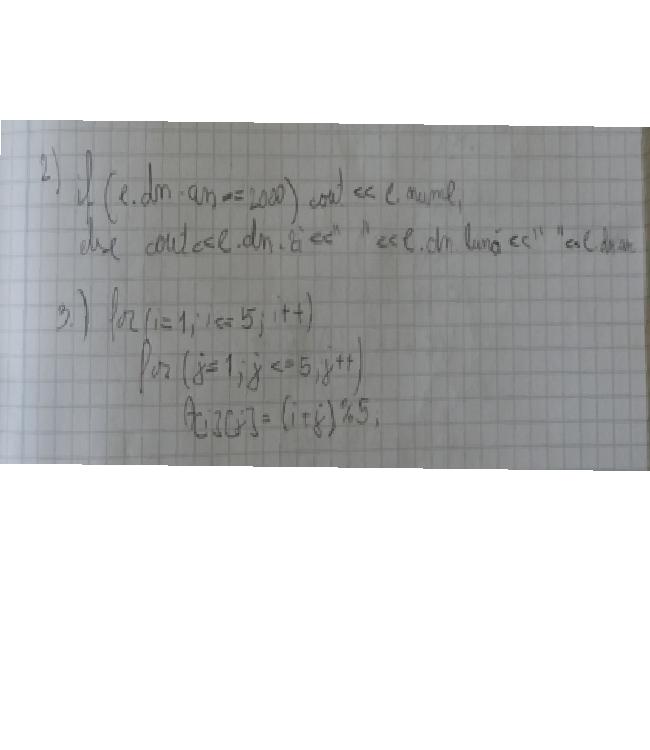 2) if (e.dn.an==2000) cout << e.nume;
else cout<<e.dn.zi<<" "<<e.dn.luna<<" "<<e.dn.an
3.) for(i=1;i<=5;i++)
for(j=1;j<=5;j++)
A[i][j]=(i+j)%5;